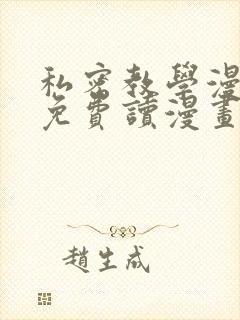 私密教學漫
免費讀漫畫
趙生成